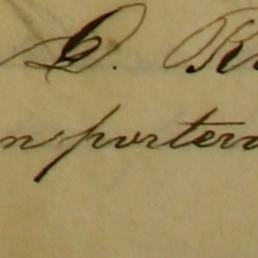 D. R
n porter